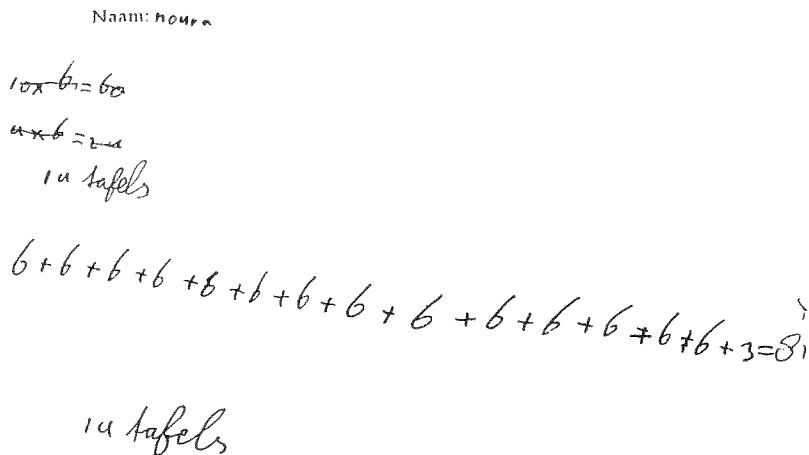 Naam: noura
10x6=60
4x6=24
14 tafels
6+6+6+6+6+6+6+6+6+6+6+6+6+6+3=
14 tafels